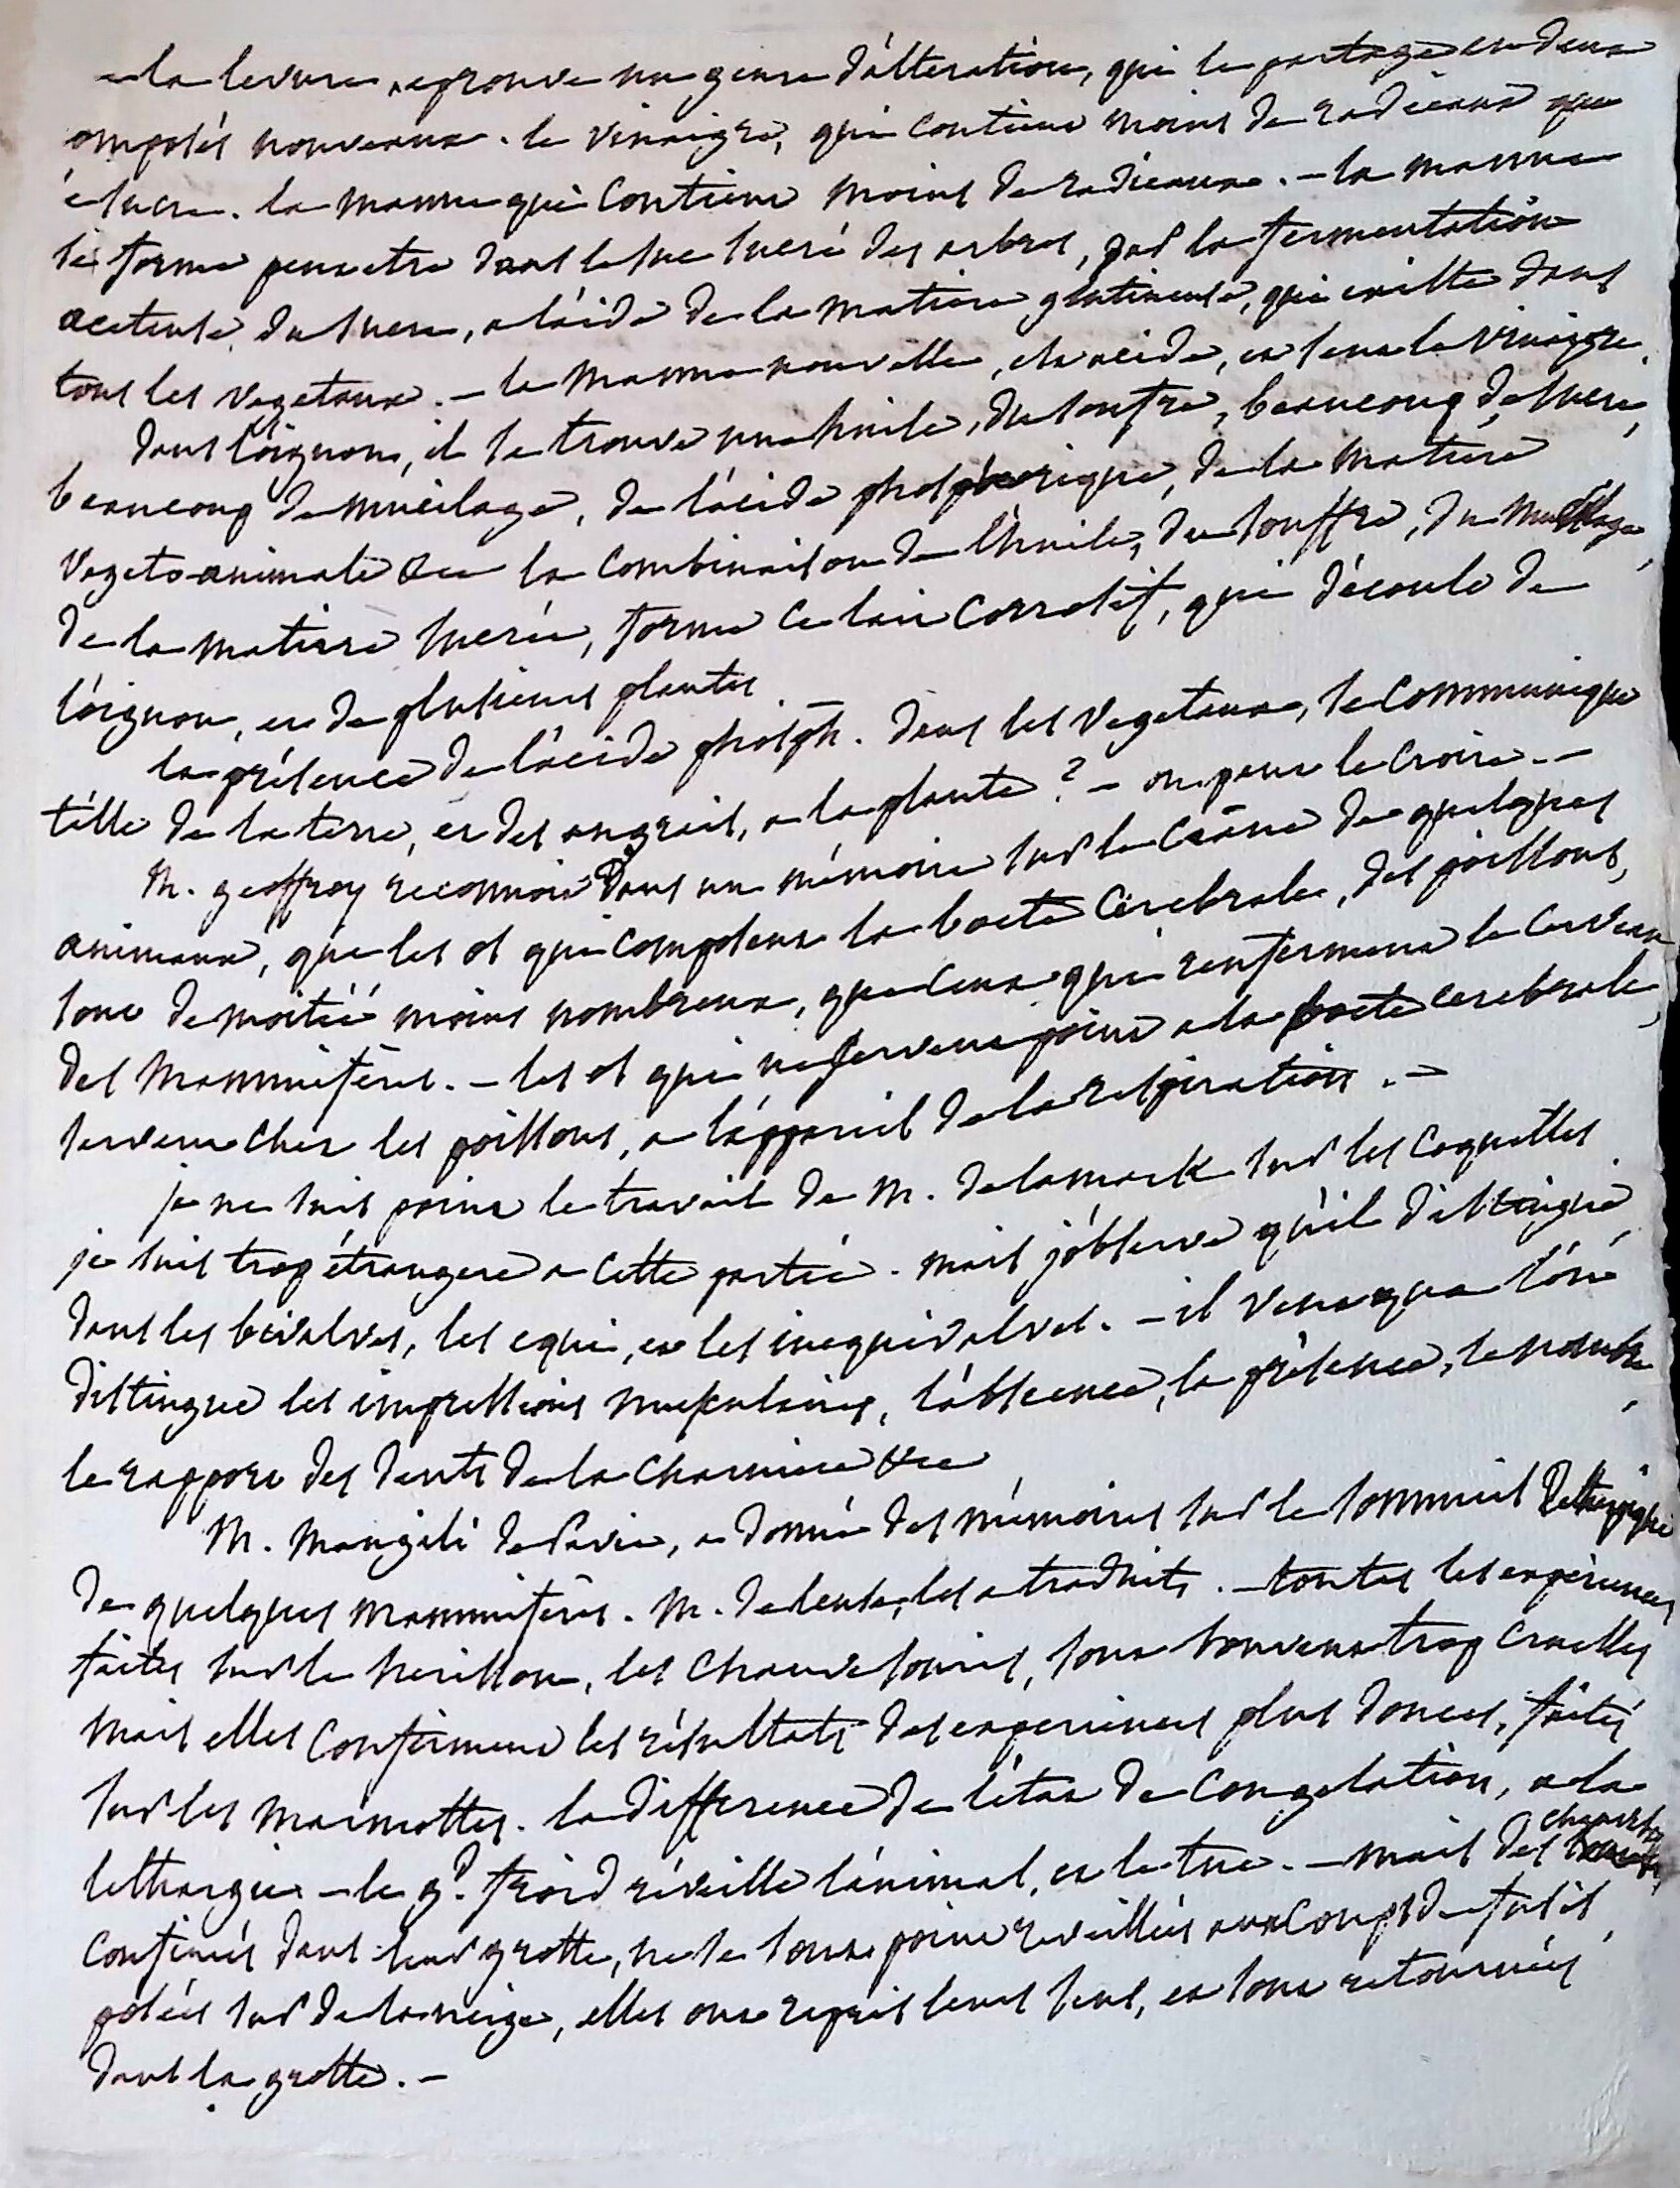 a la levure, eprouve un genre d'altération, qui le partage en deux
omposés nouveaux. le vinaigre, qui contient moins de radicaux que
e sucre. la manne qui contient moins de radicaux. - la manne
se forme peut etre dans le suc sucré des arbres, par la fermentation
aceteuse du sucre, a l'aide de la matiere glutineuse, qui existe dans
tous les vegetaux. - la manne nouvelle, est acide, et sent le vinaigre.
dans l'oignon, il se trouve une huile, du soufre, beaucoup de sucre,
beaucoup de mucilage, de l'acide phosphorique, de la matiere
vegeto-animale &c la combinaison de l'huile, du souffre, du mucilage,
de la matiere sucrée, forme ce lait corrosif, qui découle de
l'oignon, et de plusieurs plantes
la présence de l'acide phosph. dans les vegetaux, se communique
t'elle de la terre, et des engrais, a la plante? - on peut le croire. -
M. geoffroy reconnoit dans un mémoire sur le crâne de quelques
animaux, que les os qui composent la boete cérébrale, des poissons,
sont de moitié moins nombreux, que ceux qui renferment le cerveau
des mammifères. - les os qui ne servent point a la boete cerebrale,
servent chez les poissons, a l'appareil de la respiration. -
je ne suis point le travail de M. delamark sur les coquilles
je suis trop étrangere a cette partie. mais j'observe qu'il distingue
dans les bivalves, les equi, et les inequivalves. - il veut que l'on
distingue les impressions musculaires, l'absence, la présence, le nombre,
le rapport des dents de la charniere &c
M. mangili de Pavie, a donné des mémoires sur le sommeil lethargique
de quelques mammifères. M. deleuze, les a traduits. - toutes les experiences
faites sur le herisson, les chauve souris, sont souvent trop cruelles
mais elles confirment les résultats des experiences plus douces, faites
sur les marmottes. la difference de l'état de congelation, a la
lethargie - le gd. froid réveille l'animal, et le tue. - mais des chauves s.
confinés dans leur grotte, ne se sont point reveillées aux coups de fusil,
posées sur de la neige, elles ont repris leurs sens, et sont retournées
dans la grotte. -